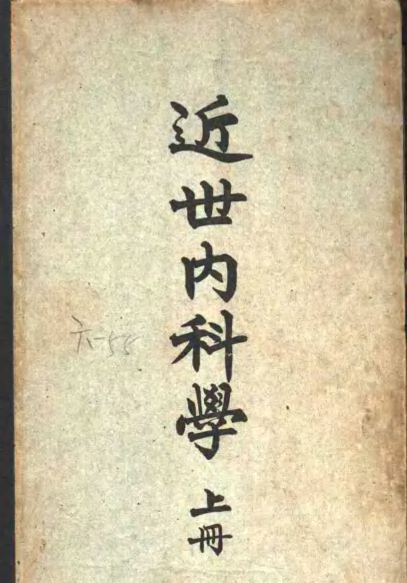 近世內科學 上冊
六-58